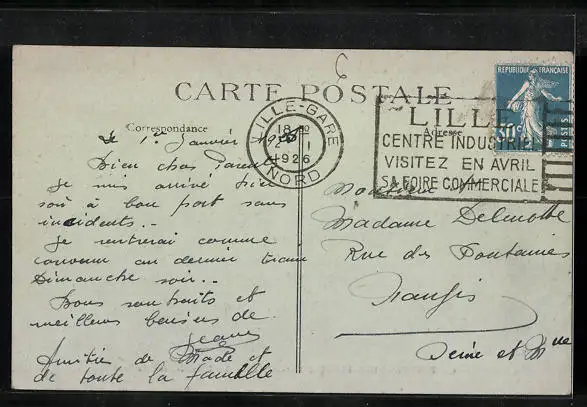 6
CARTE POSTALE
Correspondance
Adresse
REPUBLIQUE FRANÇAISE
30c
POSTES
LILLE-GARE
18
2 - 1
1926
NORD
LILLE
CENTRE INDUSTRIEL
VISITEZ EN AVRIL
SA FOIRE COMMERCIALE
Le 1er Janvier 1926
Bien chers Parents
Je suis arrivé hier
soir à bon port sans
incidents..
Je rentrerai comme
convenu au dernier train
Dimanche soir..
Bons souhaits et
meilleurs baisers de
Jean
Amitiés de Made et
de toute la famille
Monsieur
Madame Delmotte
Rue des Fontaines
Nangis
Seine et Mne